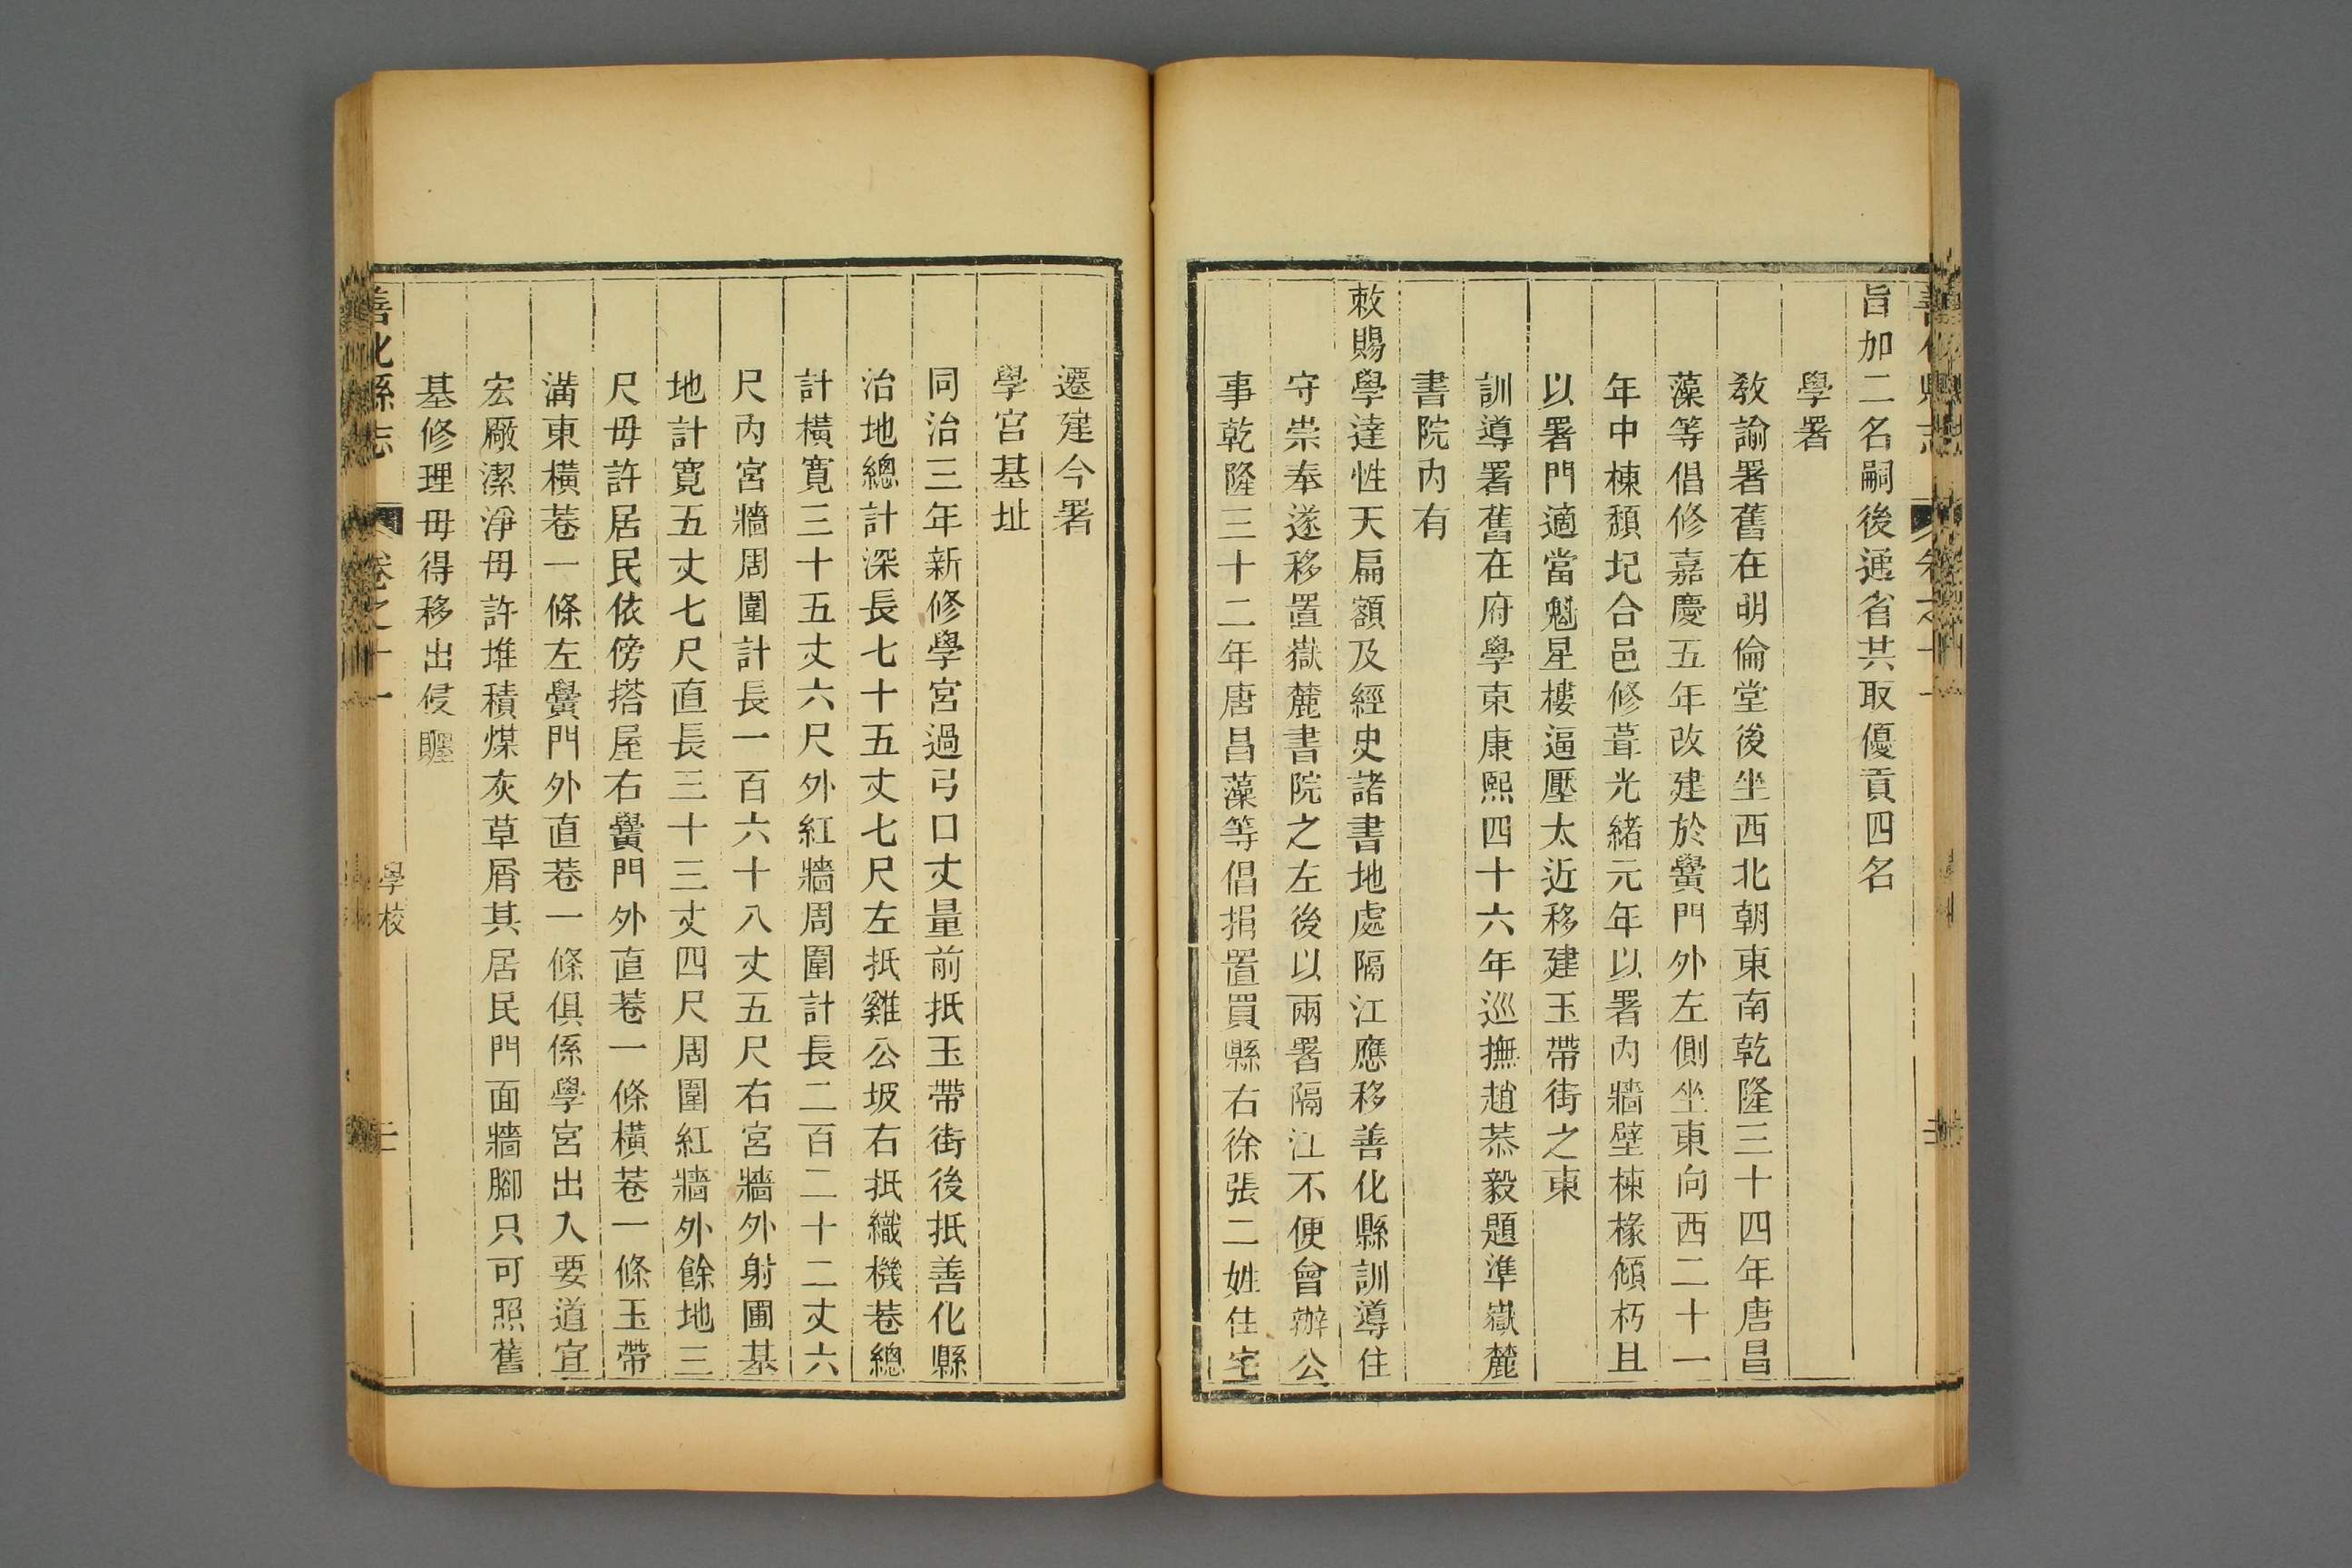 旨加二名嗣後通省共取優貢四名
學署
教諭署舊在明倫堂後坐西北朝東南乾隆三十四年唐昌
藻等倡修嘉慶五年改建於黌門外左側坐東向西二十一
年中棟頹圮合邑修葺光緒元年以署內牆壁棟椽傾朽且
以署門適當魁星樓逼壓太近移建玉帶街之東
訓導署舊在府學東康熙四十六年巡撫趙恭毅題準嶽麓
書院內有
敕賜學達性天扁額及經史諸書地處隔江應移善化縣訓導住
守崇奉遂移置嶽麓書院之左後以兩署隔江不便會辦公
事乾隆三十二年唐昌藻等倡捐置買縣右徐張二姓住宅
遷建今署
學宮基址
同治三年新修學宮過弓口丈量前抵玉帶街後抵善化縣
治地總計深長七十五丈七尺左抵雞公坡右抵織機巷總
計橫寬三十五丈六尺外紅牆周圍計長二百二十二丈六
尺內宮牆周圍計長一百六十八丈五尺右宮牆外射圃基
地計寬五丈七尺直長三十三丈四尺周圍紅牆外餘地三
尺毋許居民依傍搭屋右黌門外直巷一條橫巷一條玉帶
溝東橫巷一條左黌門外直巷一條俱係學宮出入要道宜
宏廠潔淨毋許堆積煤灰草屑其居民門面牆腳只可照舊
基修理毋得移出侵𧸘
善化縣志
卷之十一
學校